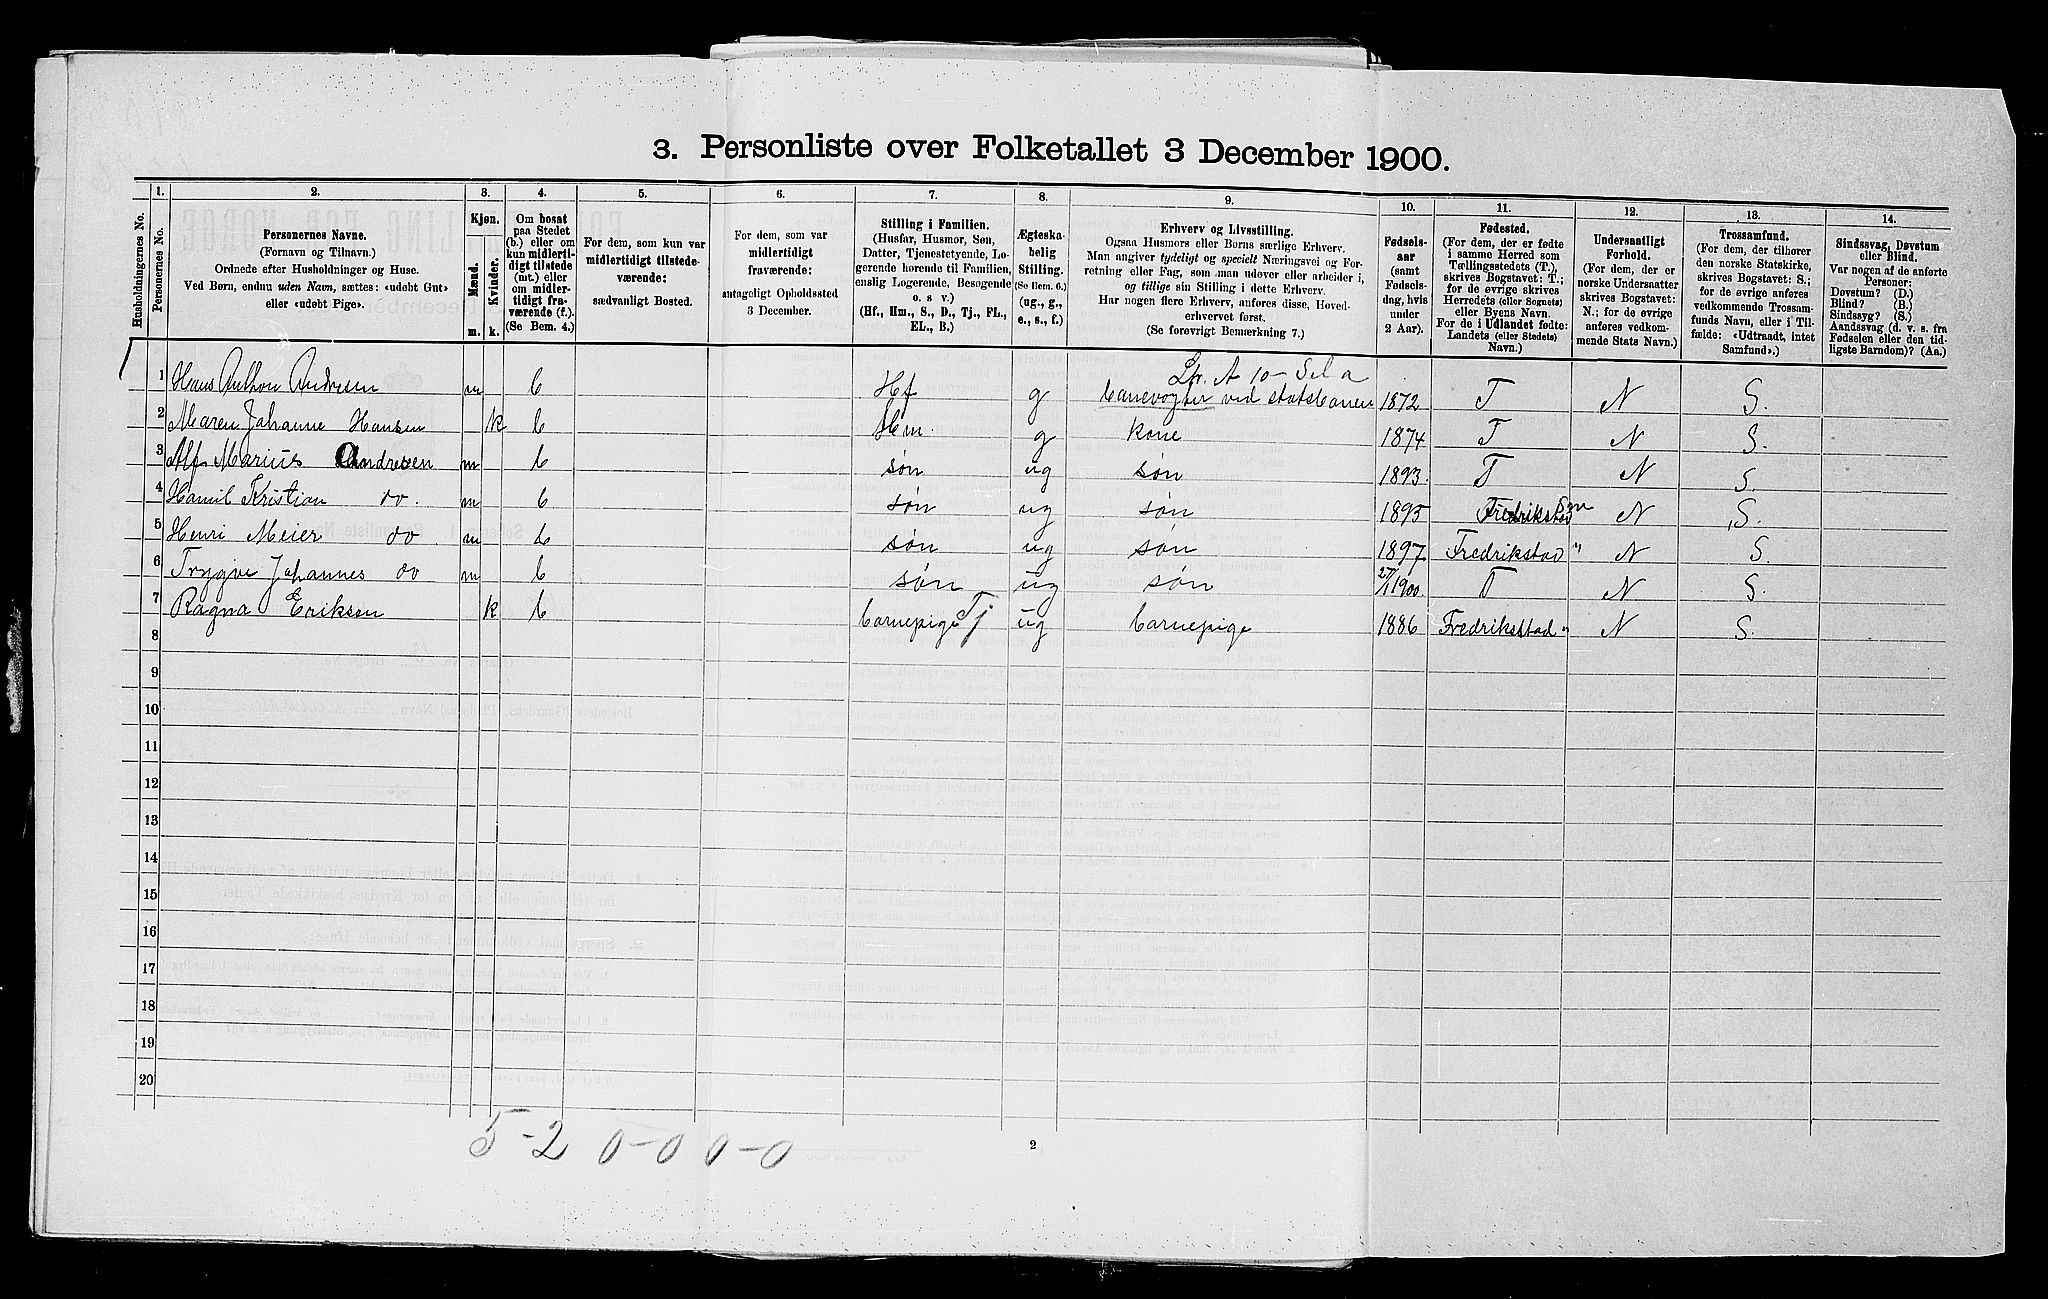 3. Personliste over Folketallet 3 December 1900.
Husholdningernes No.
1.
Personernes No.
2.
Personernes Navne.
(Fornavn og Tilnavn.)
Ordnede efter Husholdninger og Huse.
Ved Børn, endnu uden Navn, sættes: «udøbt Gut»
eller «udøbt Pige».
3.
Kjøn.
Mænd.
Kvinder.
m.
k.
4.
Om bosat
paa Stedet
(b.) eller om
kun midlerti-
digt tilstede
(mt.) eller
om midler-
tidigt fra-
værende (f.).
(Se Bem. 4.)
5.
For dem, som kun var
midlertidigt tilstede-
værende:
sædvanligt Bosted.
6.
For dem, som var
midlertidigt
fraværende:
antageligt Opholdssted
3 December.
7.
Stilling i Familien.
(Husfar, Husmor, Søn,
Datter, Tjenestetyende, Lo-
gerende hørende til Familien,
enslig Logerende, Besøgende
o. s v.)
(Hf., Hm., S., D., Tj., FL.,
EL., B.)
8.
Ægteska-
belig
Stilling.
(Se Bem. 6.)
(ug., g.,
e., s., f.)
9.
Erhverv og Livsstilling.
Ogsaa Husmors eller Børns særlige Erhverv.
Man angiver tydeligt og specielt Næringsvei og For-
retning eller Fag, som man udøver eller arbeider i,
og tillige sin Stilling i dette Erhverv.
Har nogen flere Erhverv, anføres disse, Hoved-
erhvervet først.
(Se forøvrigt Bemærkning 7.)
10.
Fødsels-
aar
(samt
Fødsels-
dag, hvis
under
2 Aar).
11.
Fødested.
(For dem, der er fødte
i samme Herred som
Tællingsstedets (T.),
skrives Bogstavet: T.;
for de øvrige skrives
Herredets (eller Sognets)
eller Byens Navn.
For de i Udlandet fødte:
Landets (eller Stedets)
Navn.)
12.
Undersaatligt
Forhold.
(For dem, der er
norske Undersaatter
skrives Bogstavet:
N.; for de øvrige
anføres vedkom-
mende Stats Navn.)
13.
Trossamfund.
(For dem, der tilhører
den norske Statskirke,
skrives Bogstavet: S.;
for de øvrige anføres
vedkommende Trossam-
funds Navn, eller i Til-
fælde: «Udtraadt, intet
Samfund».)
14.
Sindssvag, Døvstum
eller Blind.
Var nogen af de anførte
Personer:
Døvstum? (D.)
Blind? (B.)
Sindssyg? (S.)
Aandssvag (d. v. s. fra
Fødselen eller den tid-
ligste Barndom)? (Aa.)
1 Hans Anthon Andresen m b Hf g Banevogter ved statsbanen 1872 T N S.
2 Maren Johanne Hansen k b Hm. g kone 1874 T N S.
3 Alf Marius Andresen m b søn ug søn 1893. T N S.
4 Hamil Kristian do. m b søn ug søn 1895 Fredrikstad N S.
5 Henri Meier do m b søn ug søn 1897 Fredrikstad " N S
6 Trygve Johannes do m b søn ug søn 27/1 1900 T N S.
7 Ragna Eriksen k b barnepige Tj ug barnepige 1886 Fredrikstad " N S.
8
9
10
11
12
13
14
15
16
17
18
19
20
5-2 0-0 0-0
2